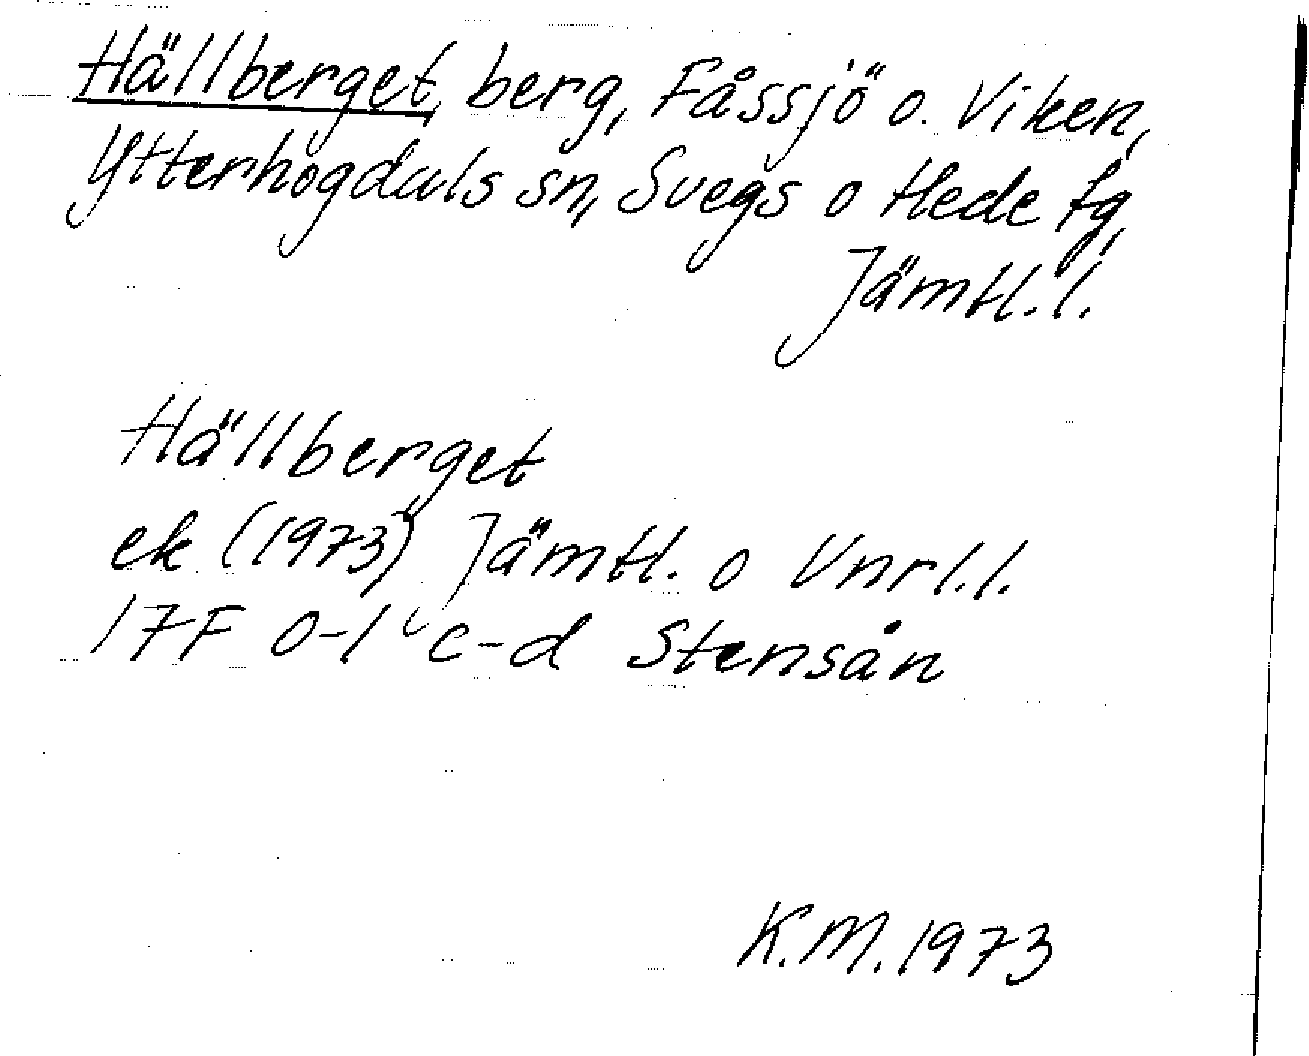 Hällberget, berg, Fåssjö o. Viken,
Ytterhogdals sn, Svegs o Hede tg,
Jämtl. l.
Hällberget
ek (1973) Jämtl. o Vnrl. l.
17F 0-1 c-d Stensån
K.M. 1973